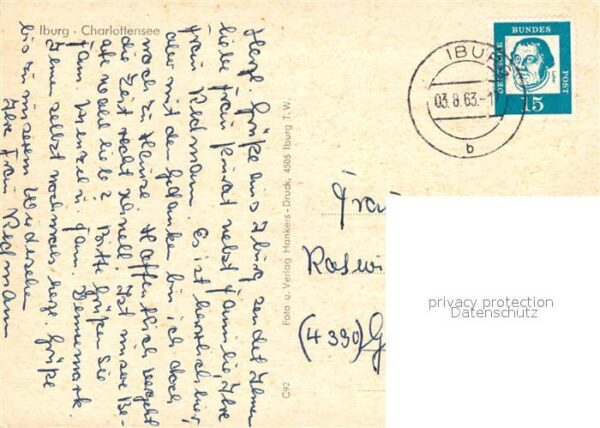 Iburg - Charlottensee
Herzl. Grüße aus Iburg sendet Ihnen
liebe Frau nebst Familie, Ihre
Frau Redmann. Es ist herrlich hier,
aber mit den Gedanken bin ich doch
noch zu Hause. Hoffentlich vergeht
die Zeit recht schnell. Ist unser Be-
ate wohl lieb? Bitte grüßen Sie
Fam. Wenzel u. Fam. Dennemark.
Ihnen selbst nochmals herz. Grüße
bis zu unserem Wiedersehen
Ihre Frau Redmann
C92 Foto u. Verlag Hankers-Druck, 4505 Iburg T.W.
IBURG
03.8.63.-1
b
DEUTSCHE BUNDES POST
15
Frau
Roswi
(4390) G
privacy protection
Datenschutz